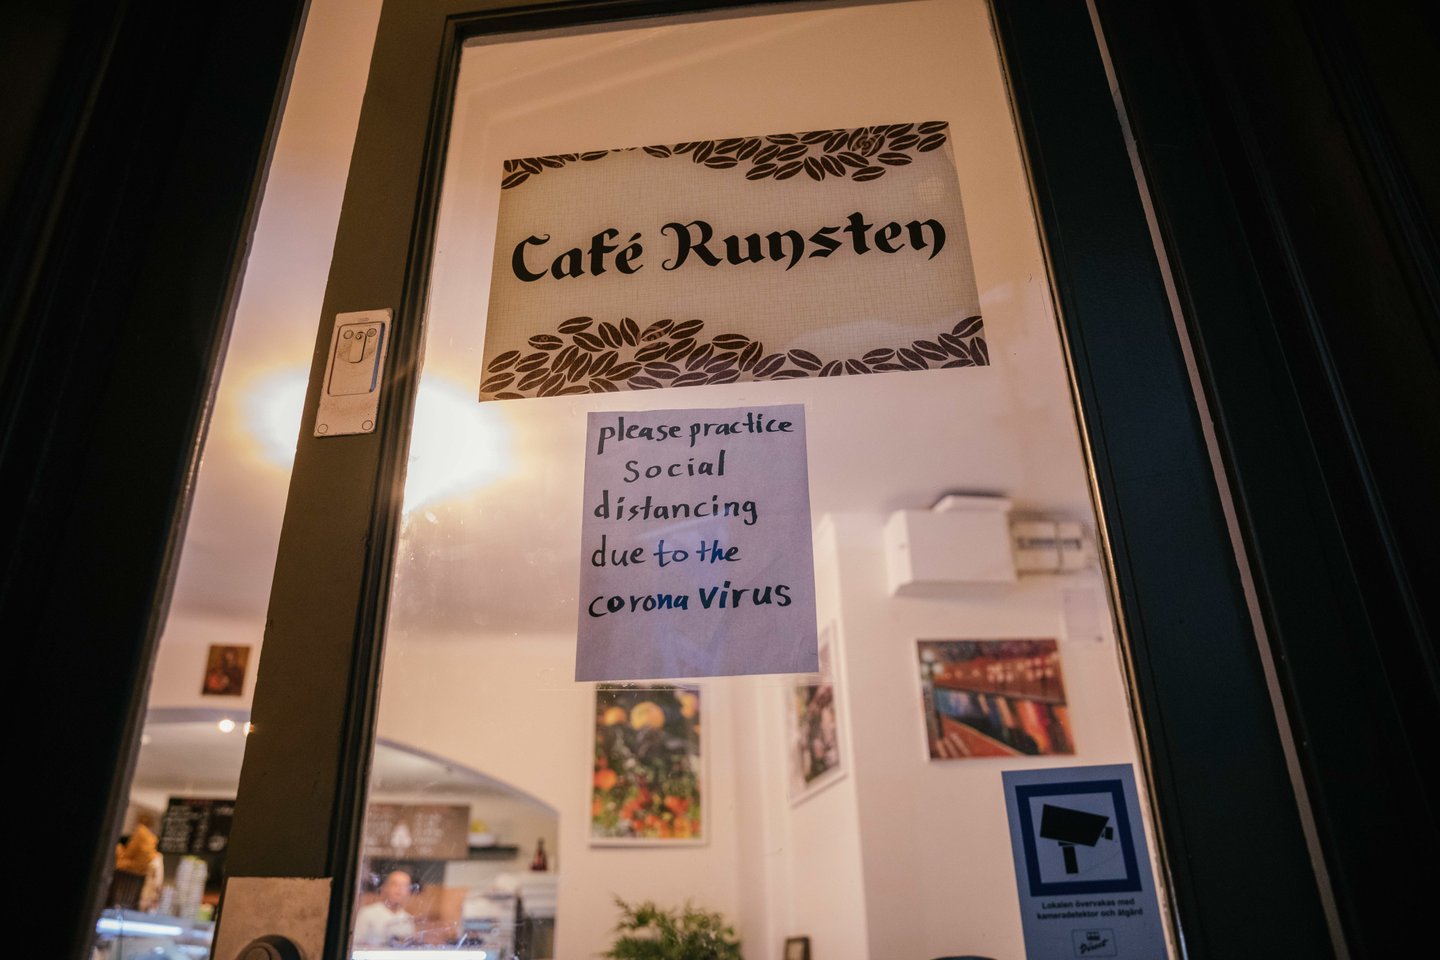 Café Runsten
please practice
social
distancing
due to the
corona virus
Lokalen övervakas med
kameradetektor och åtgärd